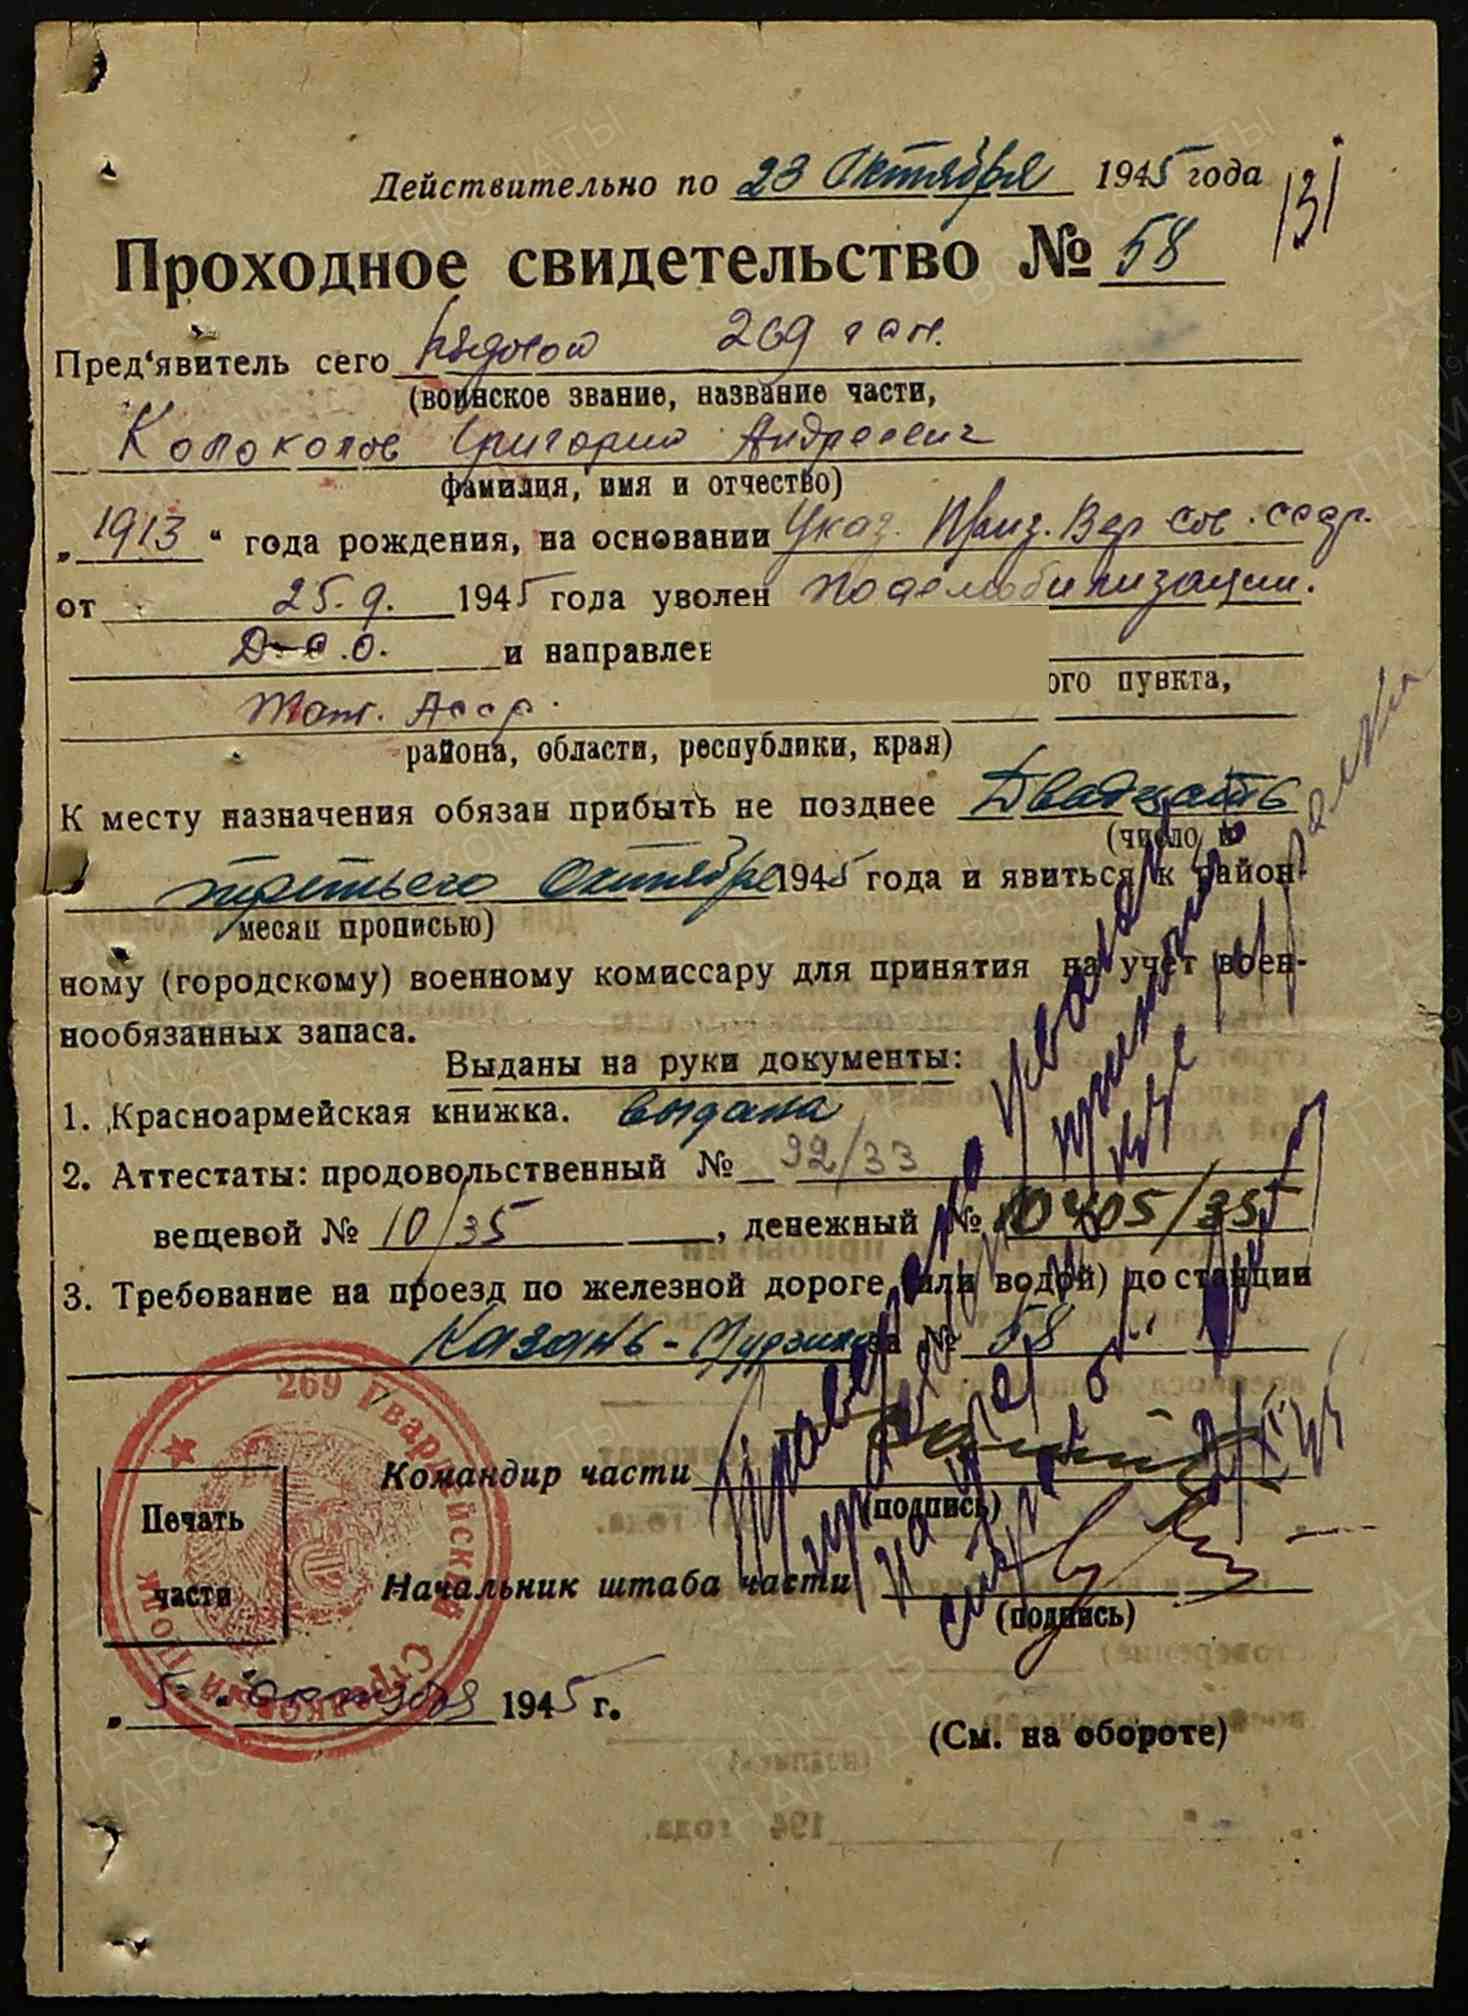 Действительно по 23 Октября 1945 года
131
Проходное свидетельство № 58
Пред'явитель сего Рядовой 269 гсп.
(воинское звание, название части,
Колоколов Григорий Андреевич
фамилия, имя и отчество)
„1913“ года рождения, на основании Указ. През. Вер Сов. ссср.
от 25.9. 1945 года уволен по демобилизации.
и направлен
ого пункта,
Тат. Асср.
района, области, республики, края)
К месту назначения обязан прибыть не позднее Двадцать
(число и
третьего Октября 1945 года и явиться к район-
месяц прописью)
ному (городскому) военному комиссару для принятия на учет воен-
нообязанных запаса.
Выданы на руки документы:
1. Красноармейская книжка. выдана
2. Аттестаты: продовольственный № 92/33
вещевой № 10/35, денежный № 10405/35
3. Требование на проезд по железной дороге (или водой) до станции
Казань за № 58
269 Гвардейский Стрелковый Полк
Командир части
(подпись)
Печать
части
Начальник штаба части
(подпись)
„5“ Октября 1945 г.
(См. на обороте)